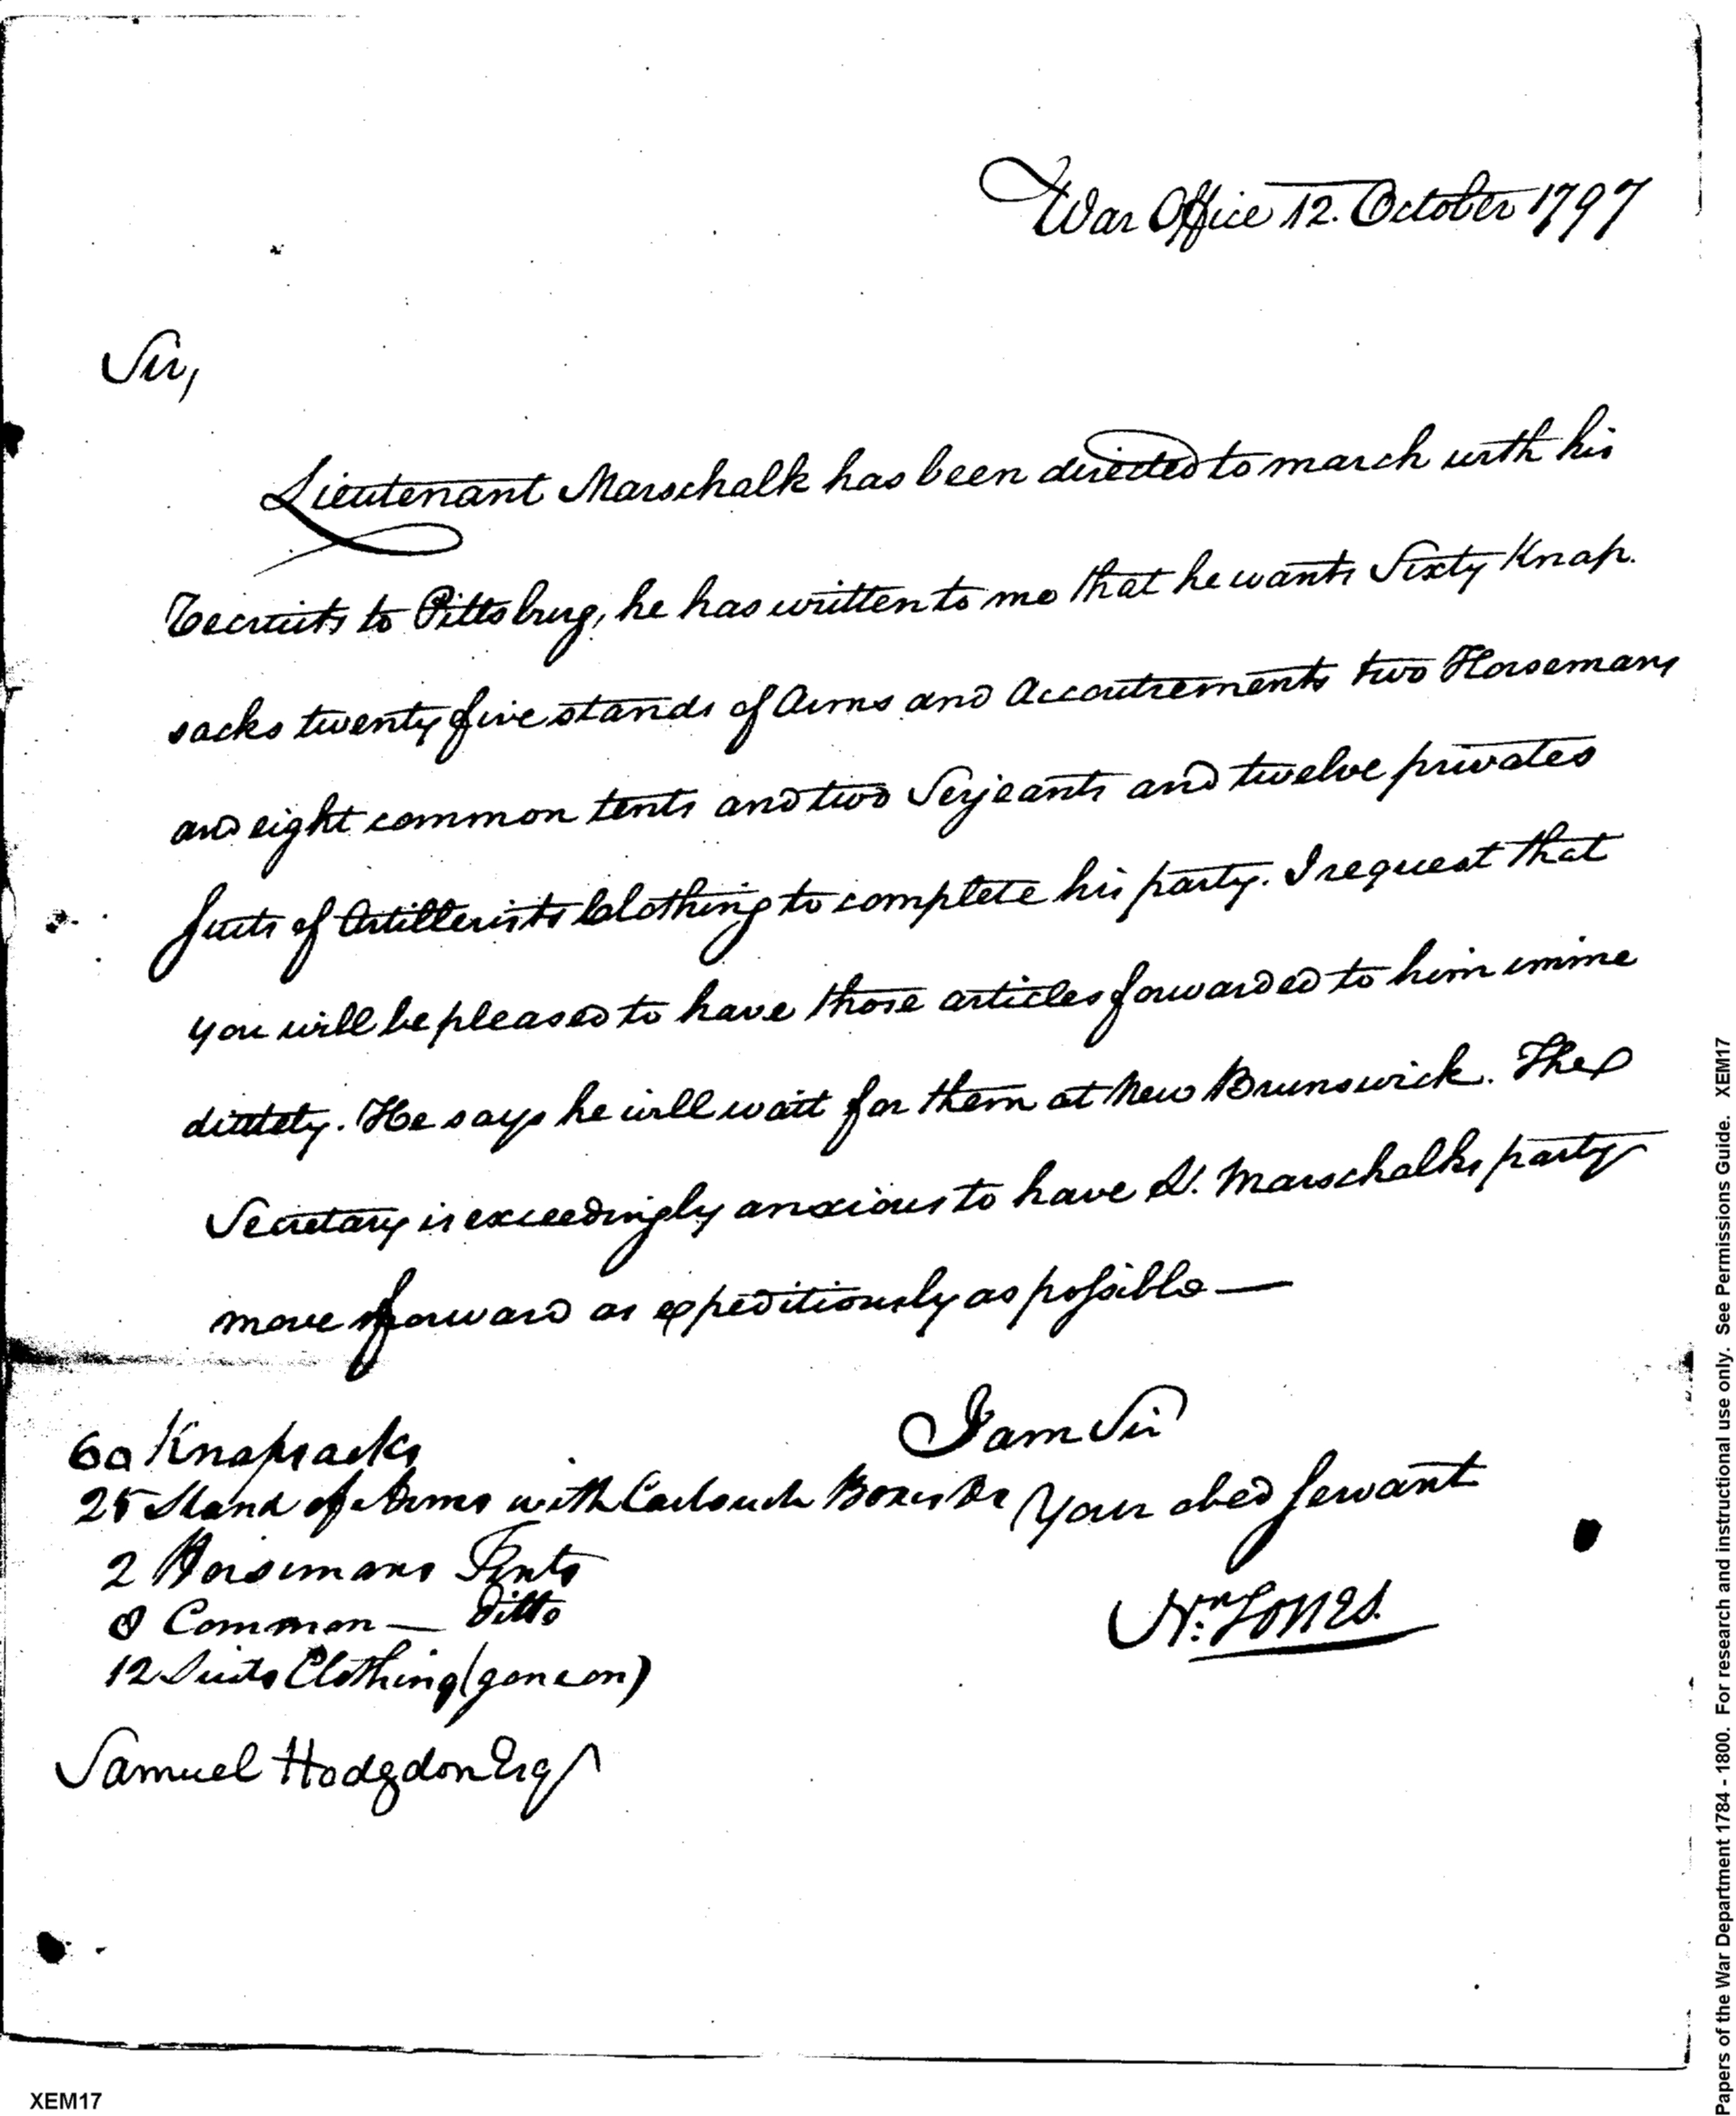 War Office 12. October 1797
Sir,
Lieutenant Marschalk has been directed to march with his
Recruits to Pittsburg, he has written to me that he wants Sixty Knap.
sacks twenty five stands of Arms and Accoutrements two Horsemans
and eight common tents and two Serjeants and twelve privates
suits of Artillerists Clothing to complete his party. I request that
you will be pleased to have those articles forwarded to him imme
diatety. He says he will wait for them at New Brunswick. The
Secretary is exceedingly anxious to have Lt. Marschalks party
move forward as expeditiously as possible —
I am Sir
Your obed servant
Wm Jones.
60 Knapsacks
25 Stand of Arms with Cartouch Boxes &c
2 Horsemans Tents
8 Common — Ditto
12 Suits Clothing (gone on)
Samuel Hodgdon Esqr
XEM17
Papers of the War Department 1784 - 1800. For research and instructional use only. See Permissions Guide. XEM17